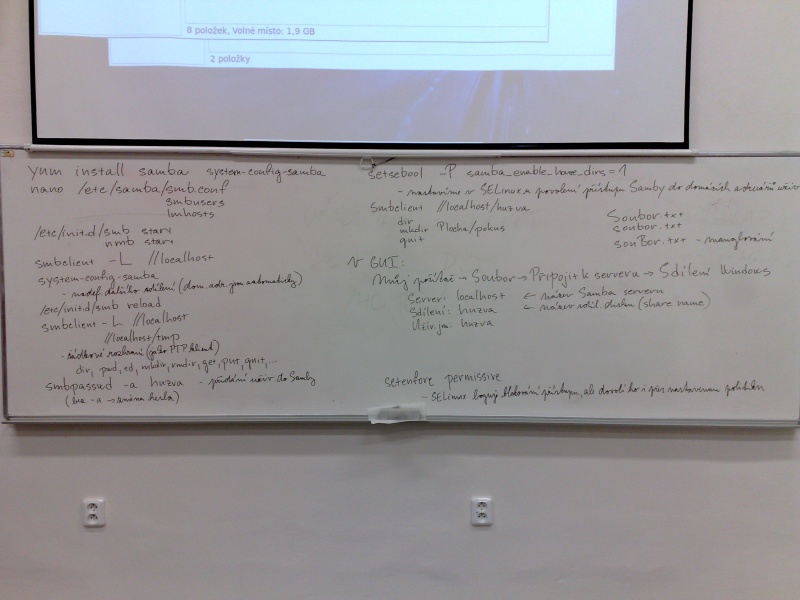 8 položek, Volné místo: 1,9 GB
2 položky
yum install samba system-config-samba
nano /etc/samba/smb.conf
smbusers
lmhosts
/etc/init.d/smb start
nmb start
smbclient -L //localhost
system-config-samba
- nadef. dalšího sdílení (dom. adr. jsou automaticky)
/etc/init.d/smb reload
smbclient -L //localhost
//localhost/tmp
- řádkové rozhraní (jako FTP klient)
dir, pwd, cd, mkdir, rmdir, get, put, quit, ...
smbpasswd -a huzva - přidání uživ. do Samby
(bez -a → změna hesla)
setsebool -P samba_enable_home_dirs=1
- nastavíme v SELinuxu povolení přístupu Samby do domácích adresářů uživ.
smbclient //localhost/huzva
dir
mkdir Plocha/pokus
quit
Soubor.txt
soubor.txt
souBor.txt - manglování
V GUI:
Můj počítač → Soubor → Připojit k serveru → Sdílení Windows
Server: localhost ← název Samba serveru
Sdílení: huzva ← název sdíl. disku (share name)
Uživ.jm. huzva
setenfore permissive
- SELinux loguje blokování přístupu, ale dovolí ho i přes nastavenou politiku